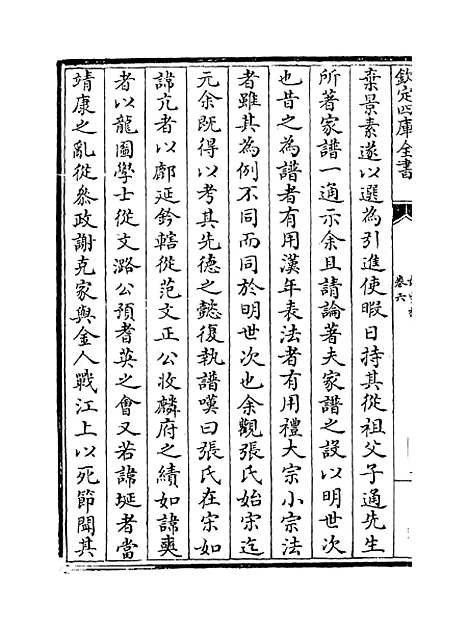 欽定四庫全書
卷六
棄景素遂以選為引進使暇日持其從祖父子通先生
所著家譜一通示余且請論著夫家譜之設以明世次
也昔之為譜者有用漢年表法者有用禮大宗小宗法
者雖其為例不同而同於明世次也余觀張氏始宋迄
元余既得以考其先德之懿復執譜嘆曰張氏在宋如
諱亢者以鄜延鈐轄從范文正公收麟府之績如諱奭
者以龍圖學士從文潞公預耆英之會又若諱埏者當
靖康之亂從叅政謝克家與金人戰江上以死節聞其